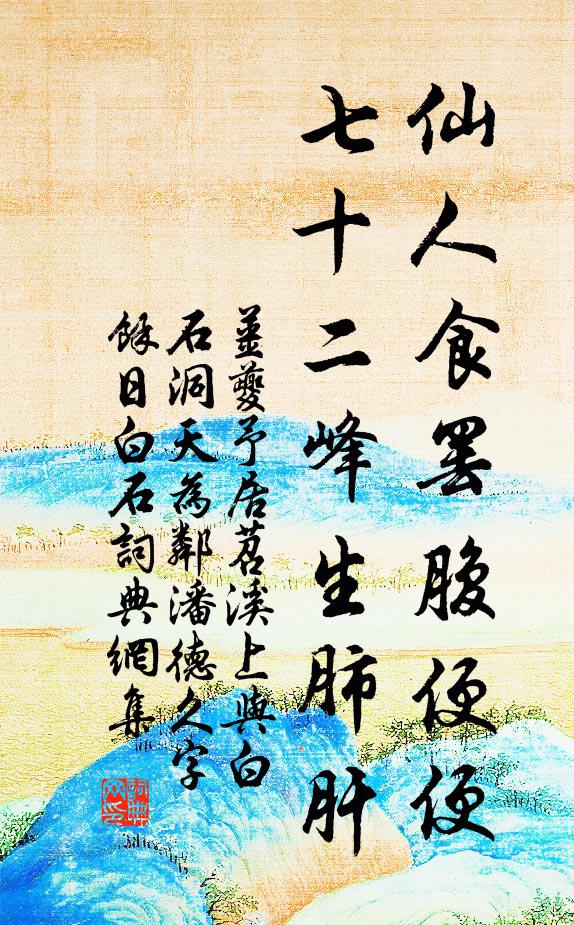 仙人食罢腹便便
七十二峰生肺肝
姜夔予居苕溪上與白
石洞天為鄰潘德久字
餘日白石詞典網集